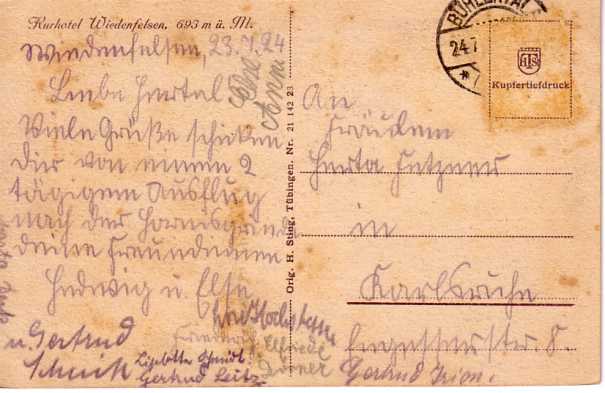 Kurhotel Wiedenfelsen, 693 m ü. M.
Wiedenfelsen, 23.7.24
Liebe Herta!
Viele Grüße schicken
Dir von einem 2
tägigem Ausflug
nach der Hornisgrinde
deine Freundinnen
Hedwig u. Else
u. Gertrud
Liselotte Schmidt.
Gertrud Leitz
Friedel
Elfriede
Dorner
Anni
Orig. H. Sting, Tübingen. Nr. 21 142 23
BÜHLERTAL
24.7
Kupfertiefdruck
An
Fräulein
Herta Fetzner
in
Karlsruhe
8.
Gertrud